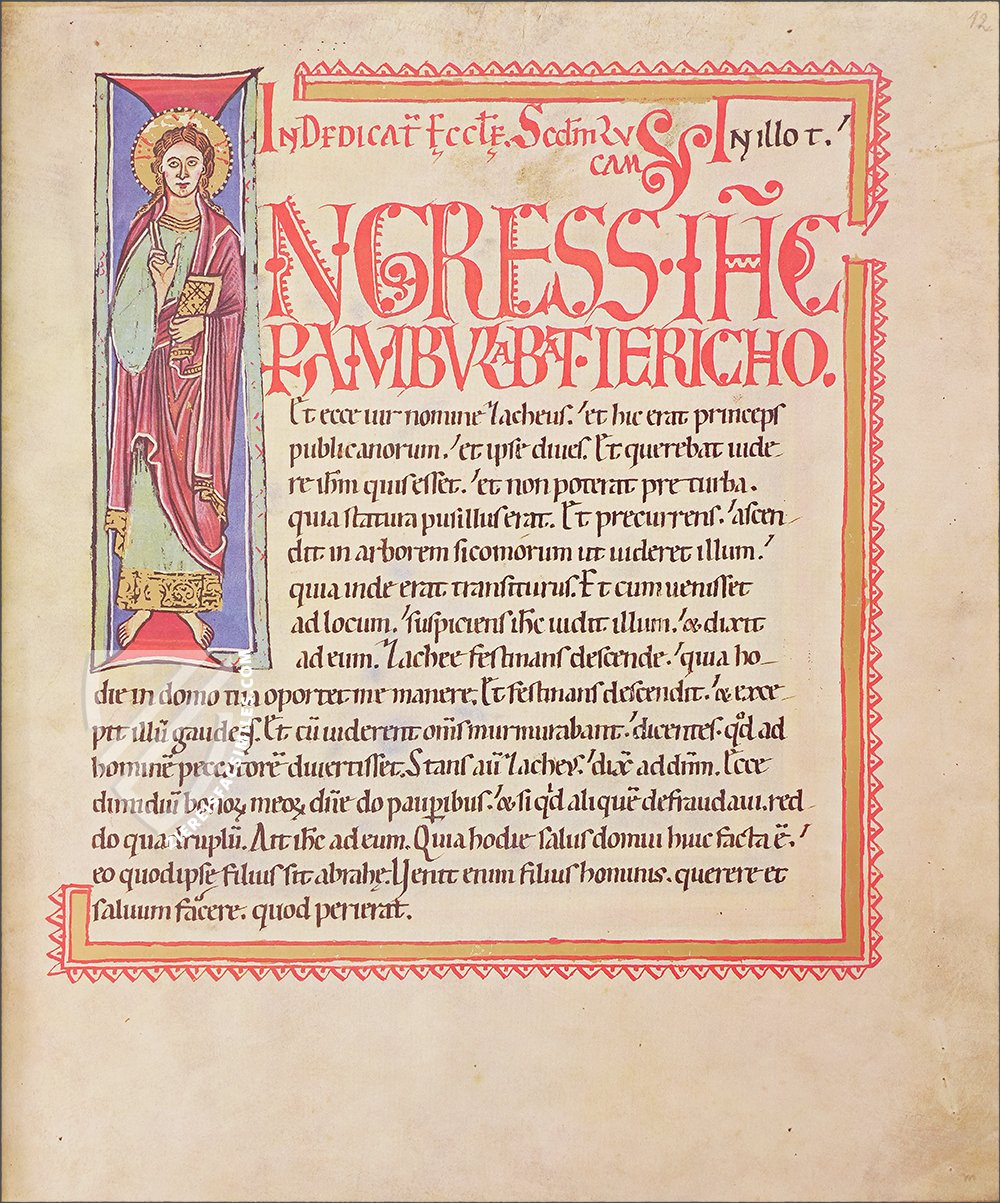 12
In Dedicat̄ Ęccl̄ę. Scd̄m Lv
cam In illo t.
INGRESS·IH̄C
PAMBVLABAT·IERICHO.
Et ecce uir nomine Zacheus. et hic erat princeps
publicanorum. et ipse diues. Et querebat uide-
re ih̄m quis esset. et non poterat pre turba.
quia statura pusillus erat. Et precurrens. ascen-
dit in arborem sicomorum ut uideret illum.
quia inde erat transiturus. Et cum uenisset
ad locum. suspiciens ih̄c uidit illum. & dixit
ad eum. Zachee festinans descende. quia ho-
die in domo tua oportet me manere. Et festinans descendit. & exce-
pit illū gaudes. Et cū uiderent om̄s murmurabant. dicentes. qd̄ ad
hominē peccatorē diuertisset. Stans aū Zacheus. dix̄ ad dn̄m. Ecce
dimidiū bonoꝝ meoꝝ dn̄e do pauꝑibus. & si qd̄ aliquē defraudaui. red-
do quadruplū. Ait ih̄c ad eum. Quia hodie salus domui huic facta ē.
eo quod ipsę filius sit abrahę. Uenit enim filius hominis. querere et
saluum facere. quod perierat.